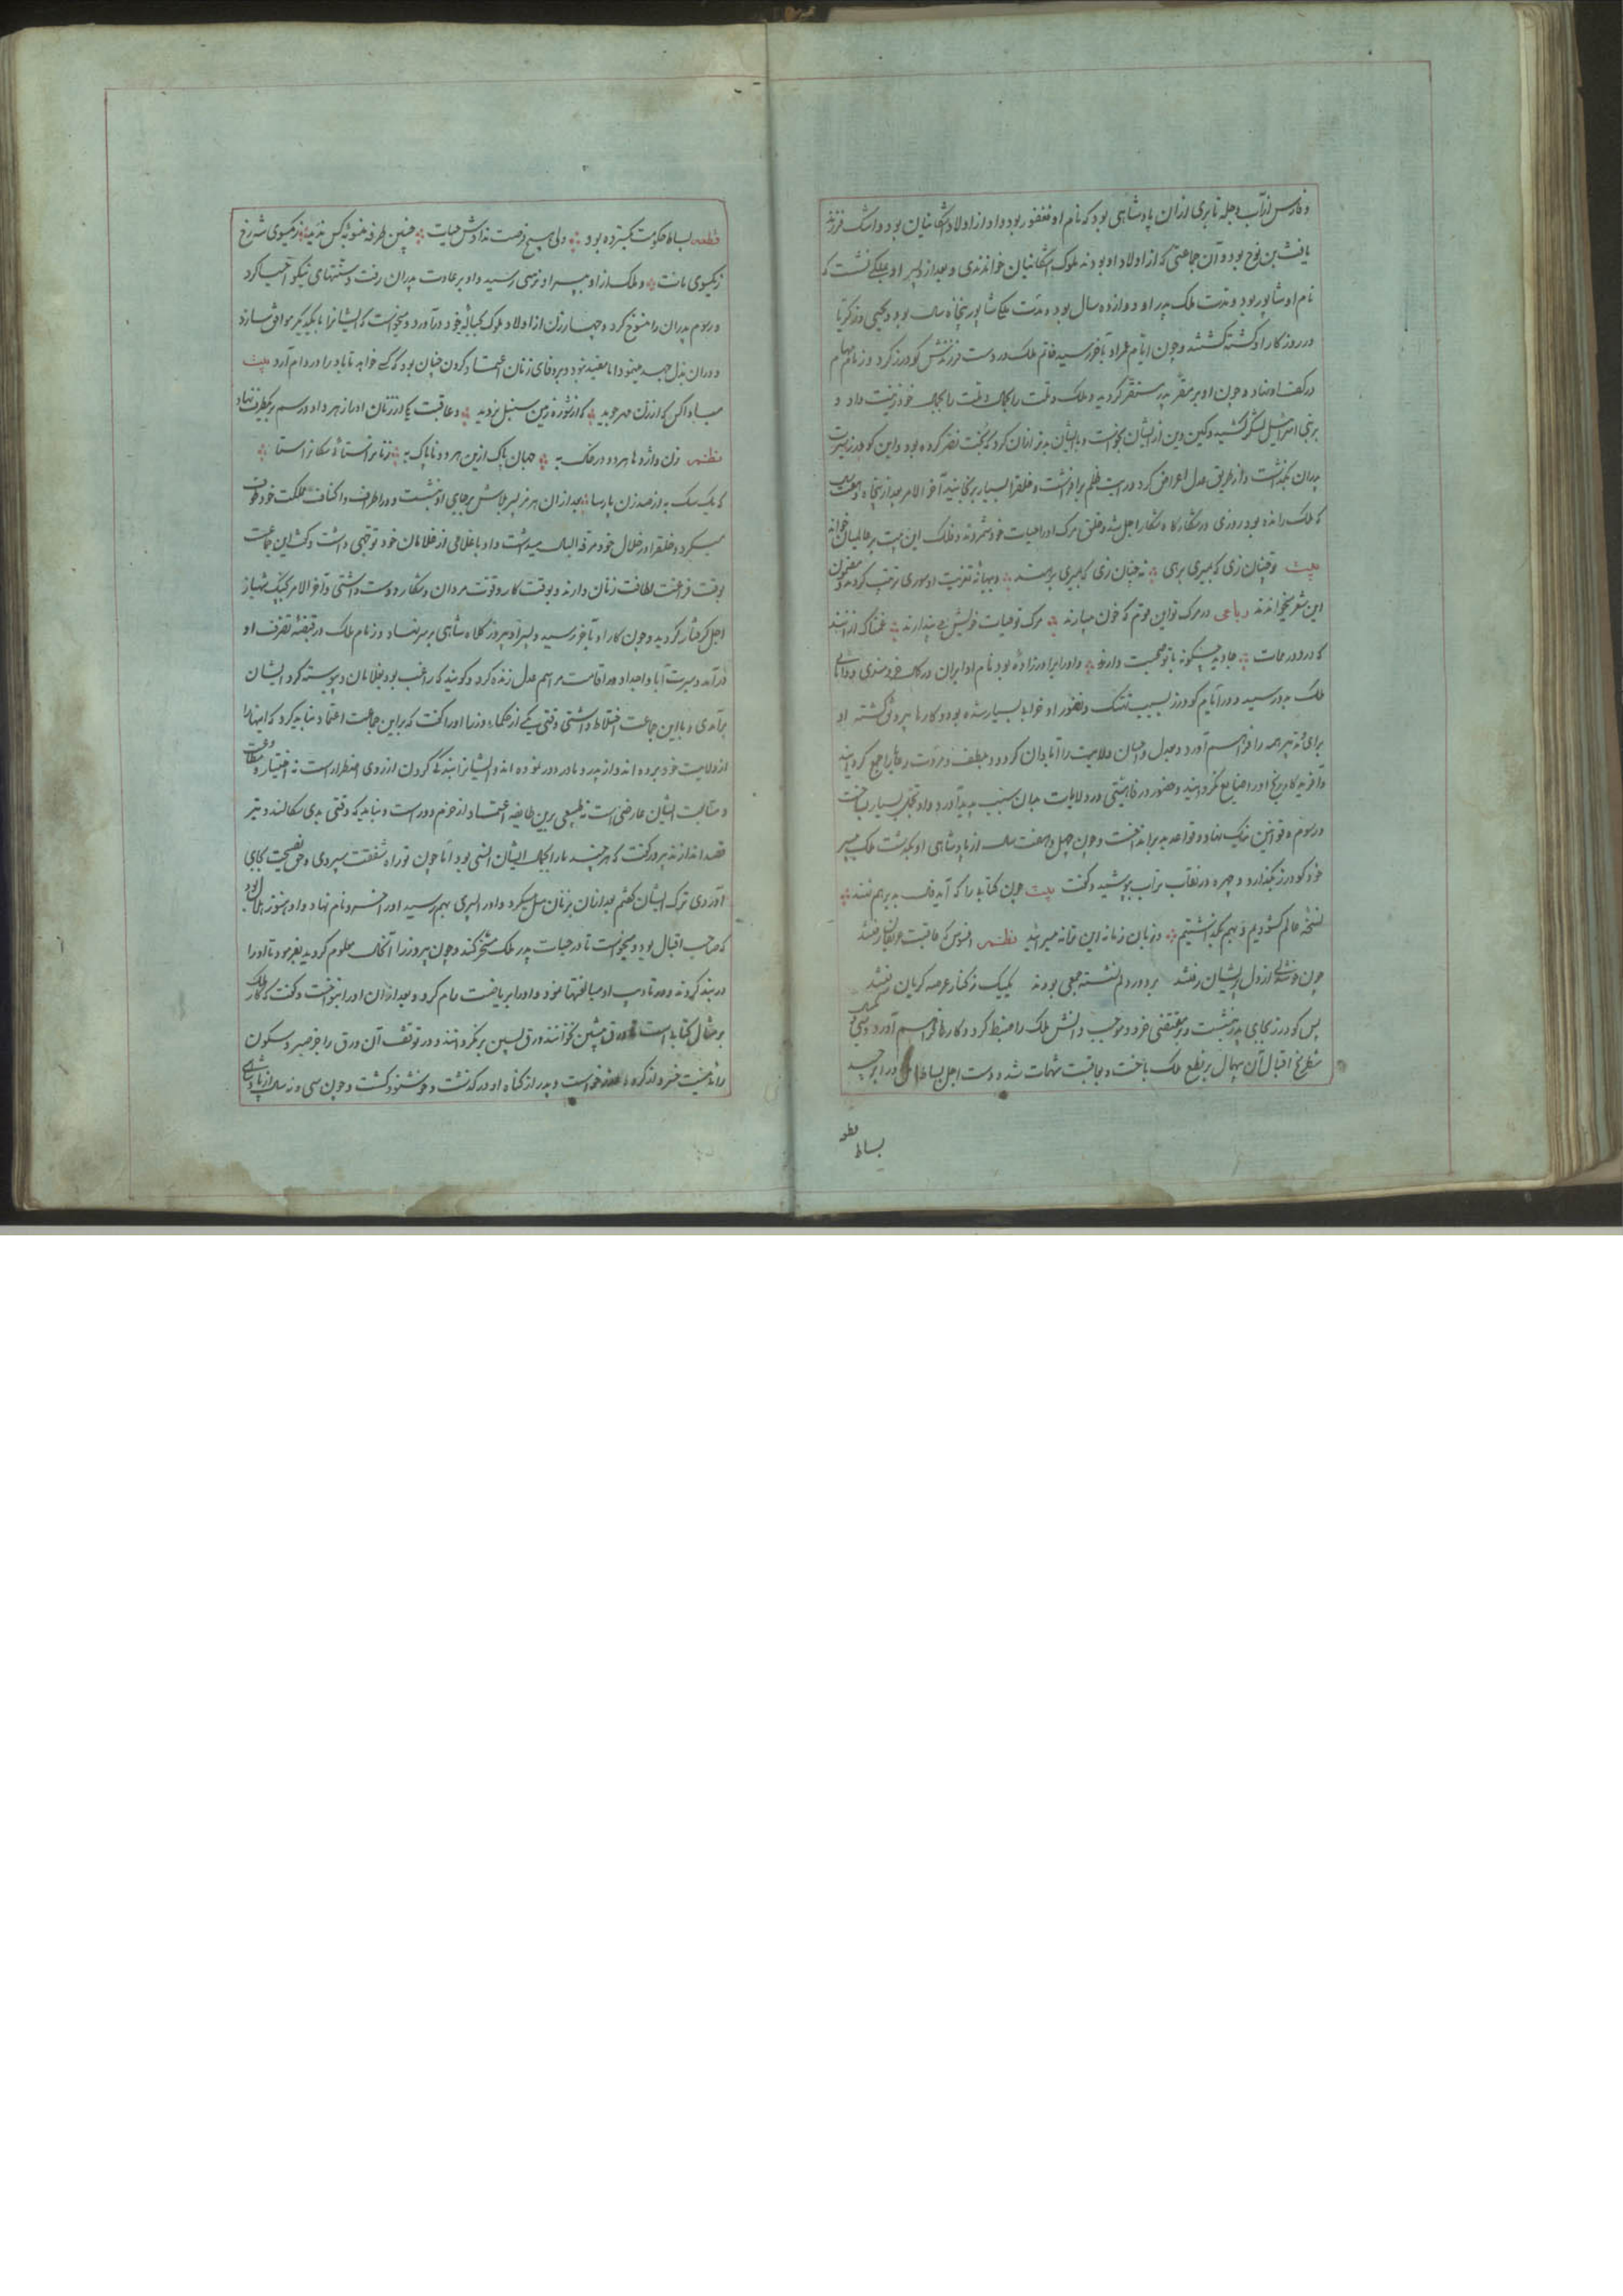 و فارس از آب دجله تا بری از ان پادشاهی بود که نام او فغفور بود و او از اولاد اشکانیان بود و اشک فرزند
یافث بن نوح بود و آن جماعتی که از اولاد او بودند ملوک اشکانیان خواندندی و بعد از پسر او بملکی نشست که
نام او شاپور بود و مدت ملک پدر او دوازده سال بود و مدت ملک شاپور پنجاه سال بود و یحیی و زکریا
در روزکار او کشته کشتند و چون ایام عمر او بآخر رسید خاتم ملک در دست فرزندش کودرز کرد و زمام مهام
در کف او نهاد و چون او بر مقر پدر مستقر کردید و ملک و ملت را بجمال خود زینت داد و
بر بنی اسرائیل لشکر کشید و کین دین از ایشان بخواست و با ایشان بدتر از ان کرد که بخت نصر کرده بود و این کودرز سیرت
پدران بگذاشت و از طریق عدل اعراض کرد و رایت ظلم برافراشت و خلقرا بسیار برنجانید آخر الامر بعد از پنجاه و هفت سال
که ملک رانده بود روزی در شکار کاه شکار اجل شد و خلق مرک او را حیات خود شمردند و فلک این بیت بر عالمیان خواند
بیت نوچنان زی که بمیری برهی نه چنان زی که بمیری برهند و ببهانه تعزیت او سوری ترتیب کردند و مضمون
این شعر میخواندند رباعی در مرک تو این قوم که خون میبارند مرک تو حیات خویش می پندارند غمناک از انند
که در ورد مات جاوید چکونه با تو صحبت دارند و او را برادرزاده بود نام او ایران در کمال خردمندی و دانائی
ملک بدو رسید و در ایام کودرز بسبب تهتک و تهور او خرابی بسیار شده بود و کارها بی رونق کشته او
برای و تدبیر همه را فراهم آورد و بعدل و احسان ولایت را آبادان کرد و بلطف و مروت رعایا را جمع کردانید
و آفریدکار رنج او را ضایع نکردانید و حضور و رفاهیتی در ولایات بدان سبب پدید آورد و او تجمل بسیار ساخت
و رسوم و قوانین نیک نهاد و قواعد بد برانداخت و چون چهل و هفت سال از پادشاهی او بگذشت ملک بپسر
خود کودرز بگذارد و چهره در نقاب تراب پوشید و کفت بیت چون کتابه را که آید فلک بر هم نهند
نسخه عالم کشودیم و بهم بگذاشتیم و زبان زمانه این ترانه میسرائید نظم افسوس که عاقبت عزیزان رفتند
چون خوشدلی از دل پریشان رفتند بر دور دلم نشسته جمعی بودند یکیک ز کنار عرصه کریان رفتند
پس کودرز بجای پدر بنشست و بمقتضی خرد و موجب دانش ملک را ضبط کرد و کارها فراهم آورد و سی سال
شطرنج اقبال آن پیمال بر نطع ملک باخت و بعاقبت شهمات شد و دست اجل بساط امل او را در برچید
قطعه
بساط
قطعه بساط حکومت بکسترده بود ولی هیچ فرصت ندادش حیات چنین طرفه منصوبه کس ندید ز یکسوی شه رخ
ز یکسوی مات و ملک از او بپسر او نرسی رسید و او بر عادت پدران رفت و سنتهای نیکو احیا کرد
و رسوم بدان را منسوخ کرد و چهار زن از اولاد ملوک بخانه خود درآورد و میخواست که ایشانرا با یکدیکر موافق سازد
و در ان بذل جهد مینمود اما مفید نبود و بر وفای زنان اعتماد کردن چنان بود که کسی خواهد تا باد را در دام آرد بیت
مبادا کس که از زن مهر جوید که از شوره زمین سنبل نروید و عاقبت یکی از زنان او را زهر داد و رسم بر یکطرف نهاد
نظم زن و اژدها هر دو در خاک به جهان پاک ازین هر دو ناپاک به زنانرا ستائی سکانرا ستا
که یک سک به از صد زن پارسا بعد از ان هرمز پسر بلاش بر جای او بنشست و در اطراف و اکناف مملکت خود طوف
میکرد و خلقرا در ظلال خود مرفه البال میداشت و او با غلامی از غلامان خود توجهی داشت و کفتی این جماعت
بوقت فراغت لطافت زنان دارند و بوقت کار و قوت مردان و شکار دوست داشتی و آخر الامر کبک شهباز
اجل کرفتار کردید و چون کار او بآخر رسید و پسر او پیروز کلاه شاهی بر سر نهاد و زمام ملک در قبضه تصرف او
درآمد و سیرت آبا و اجداد و در اقامت مراسم عدل زنده کرد و کویند که راغب بود بغلامان و پیوسته کرد ایشان
برآمدی و با این جماعت اختلاط داشتی وقتی یکی از حکما و وزرا او را کفت که بر این جماعت اعتماد نباید کرد که اینها را
از ولایت خود برده اند و از پدر و مادر دور نموده اند و ایشانرا بندکی کردن از روی اضطرار است نه اختیار و مطاوعت
و متابعت ایشان عارضی است نه طبیعی برین طایفه اعتماد از حزم دور است و نباید که وقتی بدی سکالند و تیر
قصد اندازند پیروز کفت که هر چند ما را بجمال ایشان انسی بود اما چون تو راه شفقت سپردی و حق نصیحت بجای
آوردی ترک ایشان کفتم بعد از ان بزنان میل میکرد و او را پسری بهم رسید او را خسرو نام نهاد و او هنوز طفل بود
که صاحب اقبال بود و میخواست تا در حیات پدر ملک مسخر کند و چون پیروز را آنحال معلوم کردید بفرمود تا او را
در بند کردند و در تادیب او مبالغتها نمود و او را بریاضت رام کرد و بعد از ان او را بنواخت و کفت که کار ملک
بر مثال کتابه است تا ورق پیشین نخوانند ورق پسین برنکردانند و در توقف آن ورق را جز صبر و سکون
راه نیست خسرو از کرده عذر خواست و پدر از کناه او درکذشت و خوشنود کشت و چون سی و نه سال از پادشاهی